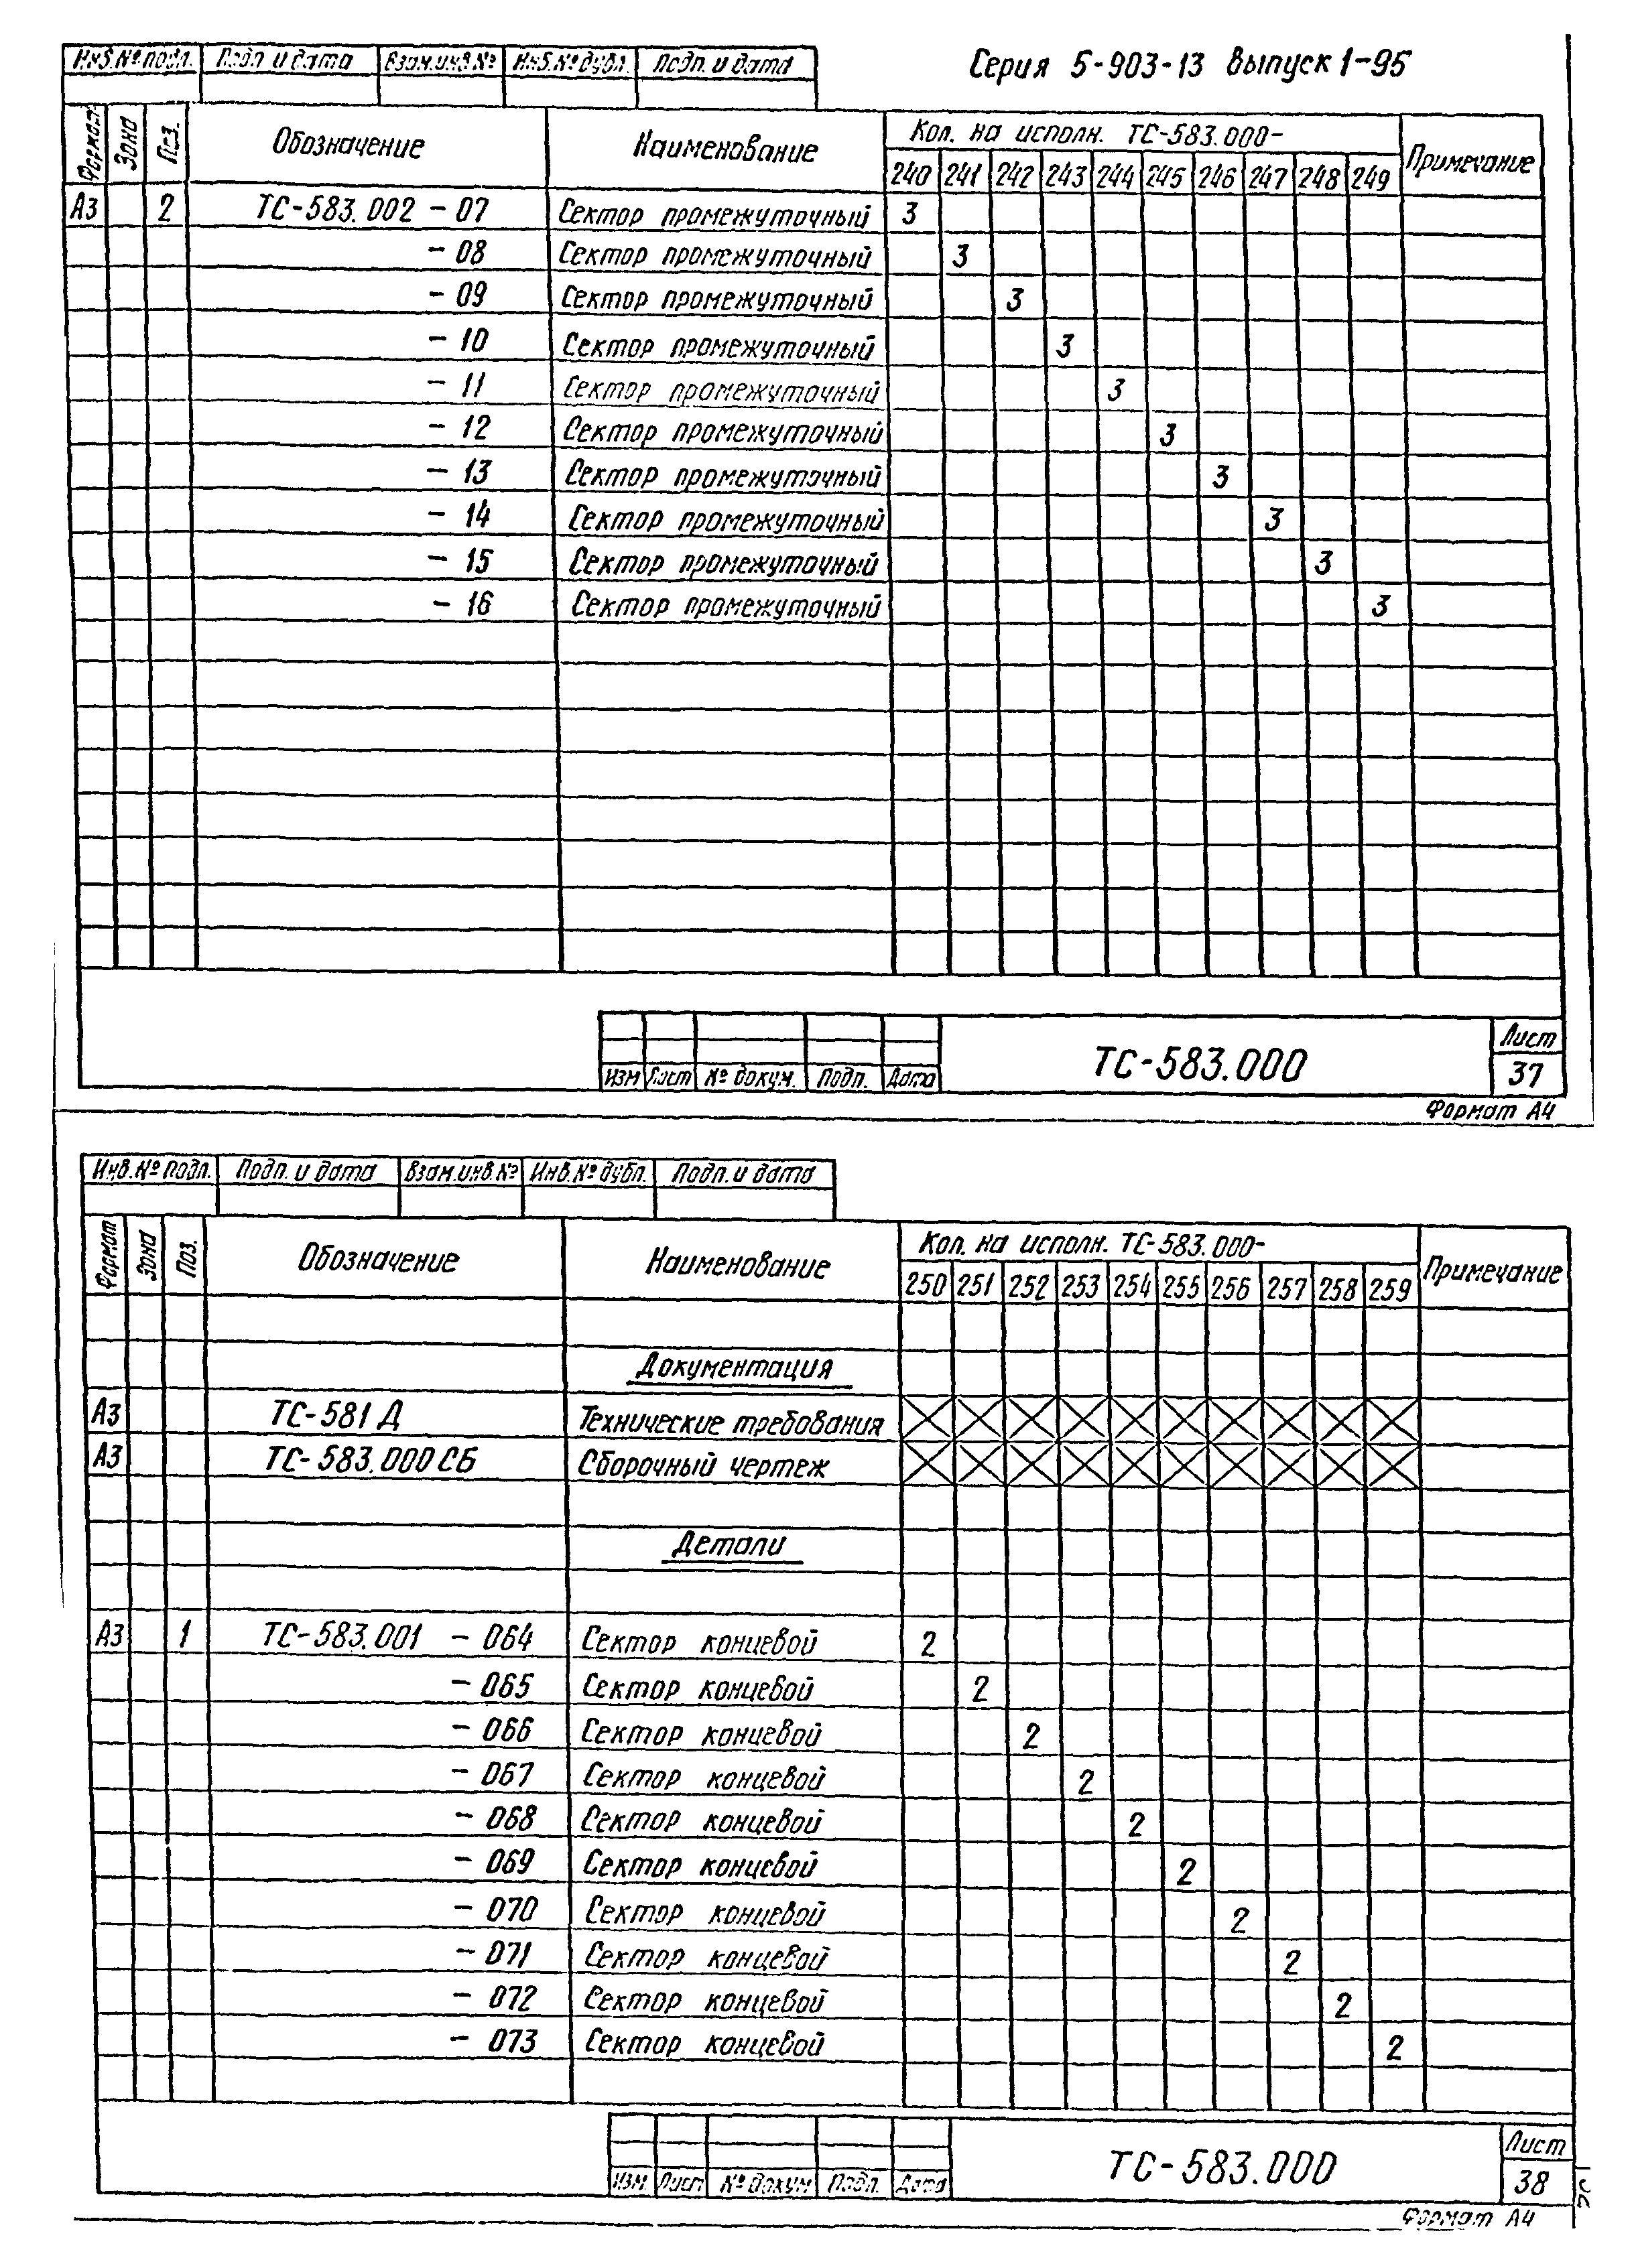 Инв.№ подл. Подп. и дата Взам.инв.№ Инв.№ дубл. Подп. и дата
Серия 5-903-13 Выпуск 1-95
Формат Зона Поз. Обозначение Наименование Кол. на исполн. ТС-583.000- Примечание
240 241 242 243 244 245 246 247 248 249
А3 2 ТС-583.002 - 07 Сектор промежуточный 3
- 08 Сектор промежуточный 3
- 09 Сектор промежуточный 3
- 10 Сектор промежуточный 3
- 11 Сектор промежуточный 3
- 12 Сектор промежуточный 3
- 13 Сектор промежуточный 3
- 14 Сектор промежуточный 3
- 15 Сектор промежуточный 3
- 16 Сектор промежуточный 3
Изм Лист № докум. Подп. Дата
ТС-583.000
Лист
37
Формат А4
Инв.№ подл. Подп. и дата Взам.инв.№ Инв.№ дубл. Подп. и дата
Формат Зона Поз. Обозначение Наименование Кол. на исполн. ТС-583.000- Примечание
250 251 252 253 254 255 256 257 258 259
Документация
А3 ТС-581 Д Технические требования
А3 ТС-583.000 СБ Сборочный чертеж
Детали
А3 1 ТС-583.001 - 064 Сектор концевой 2
- 065 Сектор концевой 2
- 066 Сектор концевой 2
- 067 Сектор концевой 2
- 068 Сектор концевой 2
- 069 Сектор концевой 2
- 070 Сектор концевой 2
- 071 Сектор концевой 2
- 072 Сектор концевой 2
- 073 Сектор концевой 2
Изм. Лист № докум Подп. Дата
ТС-583.000
Лист
38
Формат А4